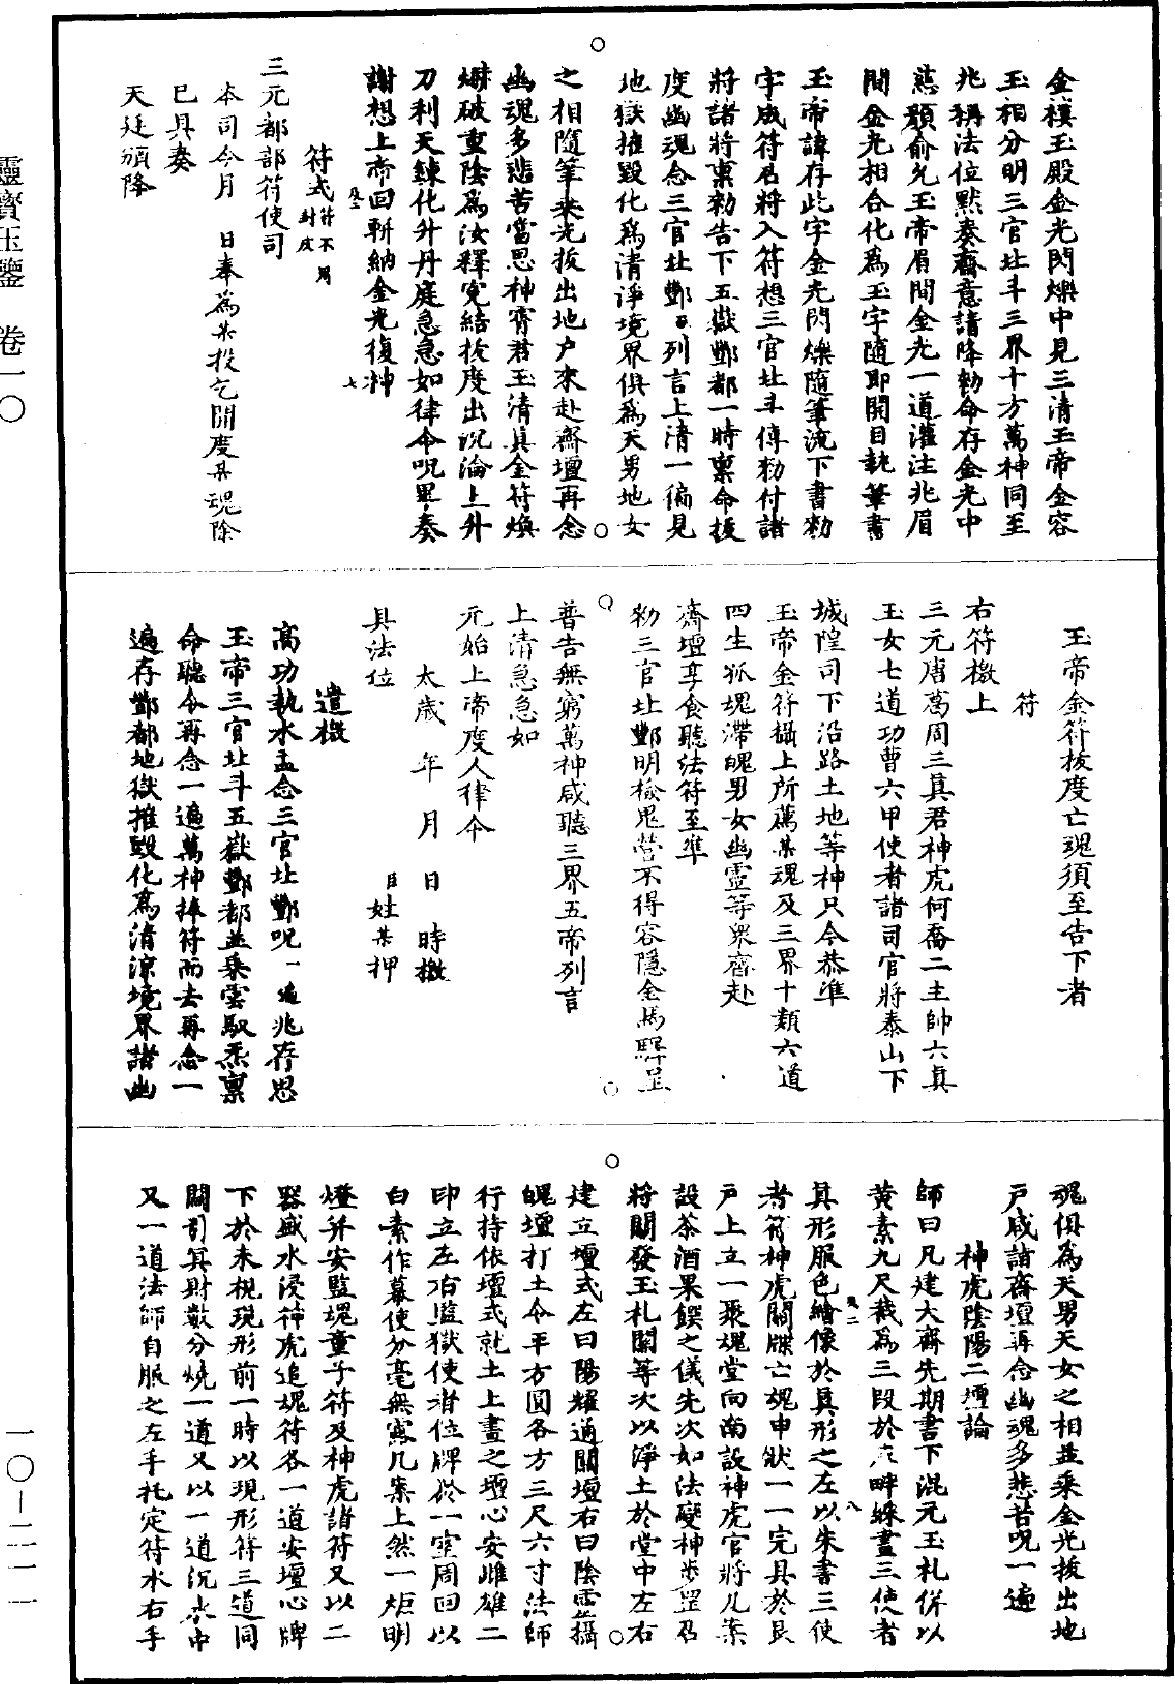 金樓玉殿金光閃爍中見三清玉帝金容
玉相分明三官北斗三界十方萬神同至
兆稱法位默奏齋意請降勑命存金光中
慈顏俞允玉帝眉間金光一道灌注兆眉
間金光相合化為玉字隨即開目執筆書
玉帝諱存此字金光閃爍隨筆流下書勑
字成符召將入符想三官北斗傳勑付諸
將諸將稟勑告下五嶽酆都一時稟命拔
度幽魂念三官北酆列言上清一徧見
地獄摧毀化為清淨境界俱為天男地女
之相隨筆乘光拔出地户來赴齋壇再念
幽魂多悲苦當思神霄君玉清真金符煥
爛破重陰為汝釋寃結拔度出沉淪上升
刀利天鍊化升丹庭急急如律令呪畢奏
謝想上帝回軿納金光復神
符式
三元都部符使司
本司今月 日奉為某投乞開度某魂除
已具奏
天廷頒降
玉帝金符拔度亡魂須至告下者
符
右符檄上
三元唐葛周三真君神虎何喬二主帥六真
玉女七道功曹六甲使者諸司官將泰山下
城隍司下沿路土地等神只今恭準
玉帝金符攝上所薦某魂及三界十類六道
四生孤魂滯魄男女幽靈等眾齊赴
齋壇享食聽法符至準
勑三官北酆明檢鬼營不得容隱金馬驛呈
普告無窮萬神咸聽三界五帝列言
上清急急如
元始上帝度人律令
太歲 年 月 日 時檄
具法位 臣姓某押
遣檄
高功執水盂念三官北酆呪一遍兆存思
玉帝三官北斗五嶽酆都並乘雲馭炁稟
命聽令再念一遍萬神捧符而去再念一
遍存酆都地獄摧毀化為清涼境界諸幽
魂俱為天男天女之相並乘金光拔出地
户咸詣齋壇再念幽魂多悲苦呪一遍
神虎陰陽二壇論
師曰凡建大齋先期書下混元玉札併以
黃素九尺裁為三段於 畔綵畫三使者
真形服色繪像於真形之左以朱書三使
者符神虎關牒亡魂申狀一一完具於艮
户上立一聚魂堂向南設神虎官將几案
設茶酒果饌之儀先次如法變神步罡召
將關發玉札關等次以淨土於堂中左右
建立壇式左曰陽耀通關壇右曰陰靈攝
魄壇打土令平方圓各方三尺六寸法師
行持依壇式就土上畫之壇心安雌雄二
印立左右監獄使者位牌於一室周回以
白素作幕使分毫無露几案上然一炬明
燈并安監魂童子符及神虎諸符又以二
器盛水浸神虎追魂符各一道安壇心牌
下於未梘現形前一時以現形符三道同
關引冥財數分燒一道又以一道沉水中
又一道法師自服之左手托定符水右手
靈寶玉鑒 卷一〇
一〇—二一一